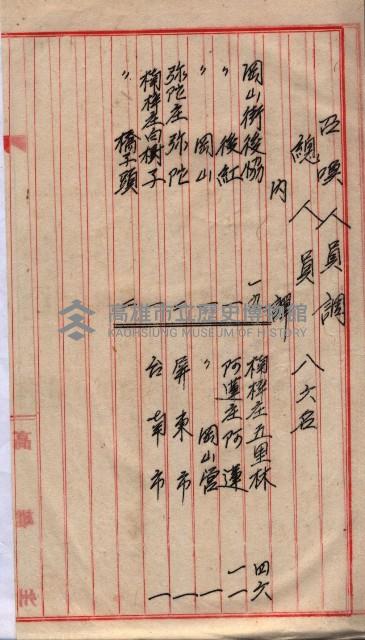 召喚人員調
總人員 八六名
內譯
岡山街後協 一九
〃 後紅 一
〃 岡山 一
弥陀庄弥陀 一
楠梓庄白樹子 一
〃 橋子頭 一
楠梓庄五里林 四六
阿蓮庄阿蓮 一一
〃 岡山營 一
屏東市 一
台南市 一
高雄市立歷史博物館
KAOHSIUNG MUSEUM OF HISTORY
高雄